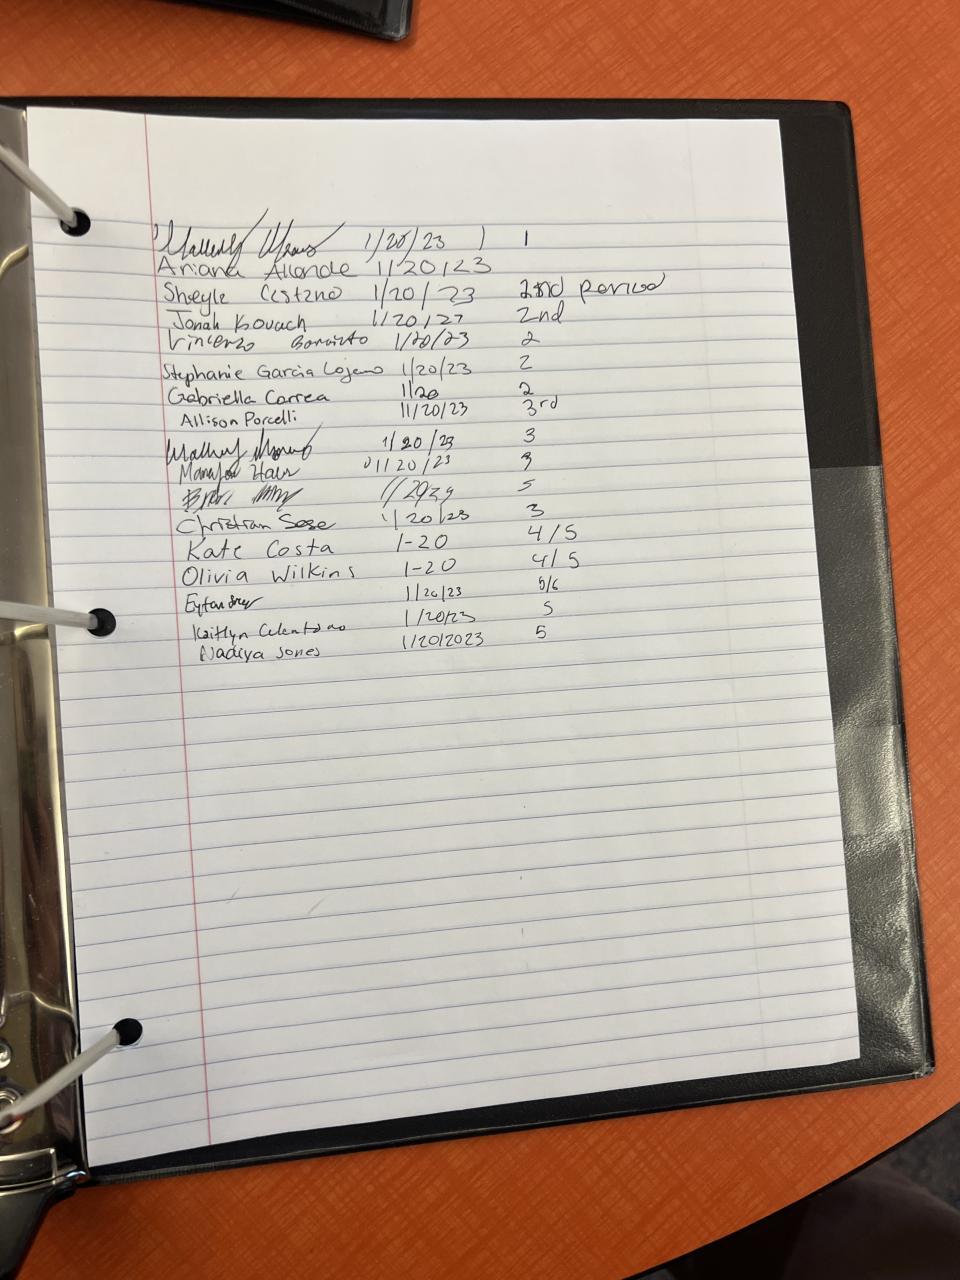 1/20/23 ) 1
Ariana Allende 1/20/23
Sheyla 1/20/23 2nd period
Jonah Kovach 1/20/27 2nd
Vincenzo 1/20/23 2
Stephanie Garcia Lojano 1/20/23 2
Gabriella Correa 1/20 2
Allison Porcelli 1/20/23 3rd
1/20/23 3
1/20/23 3
5
Christian Sosa 1/20/23 3
Kate Costa 1-20 4/5
Olivia Wilkins 1-20 4/5
1/20/23 5/6
Kaitlyn Celentano 1/20/23 5
Nadiya Jones 1/20/2023 5